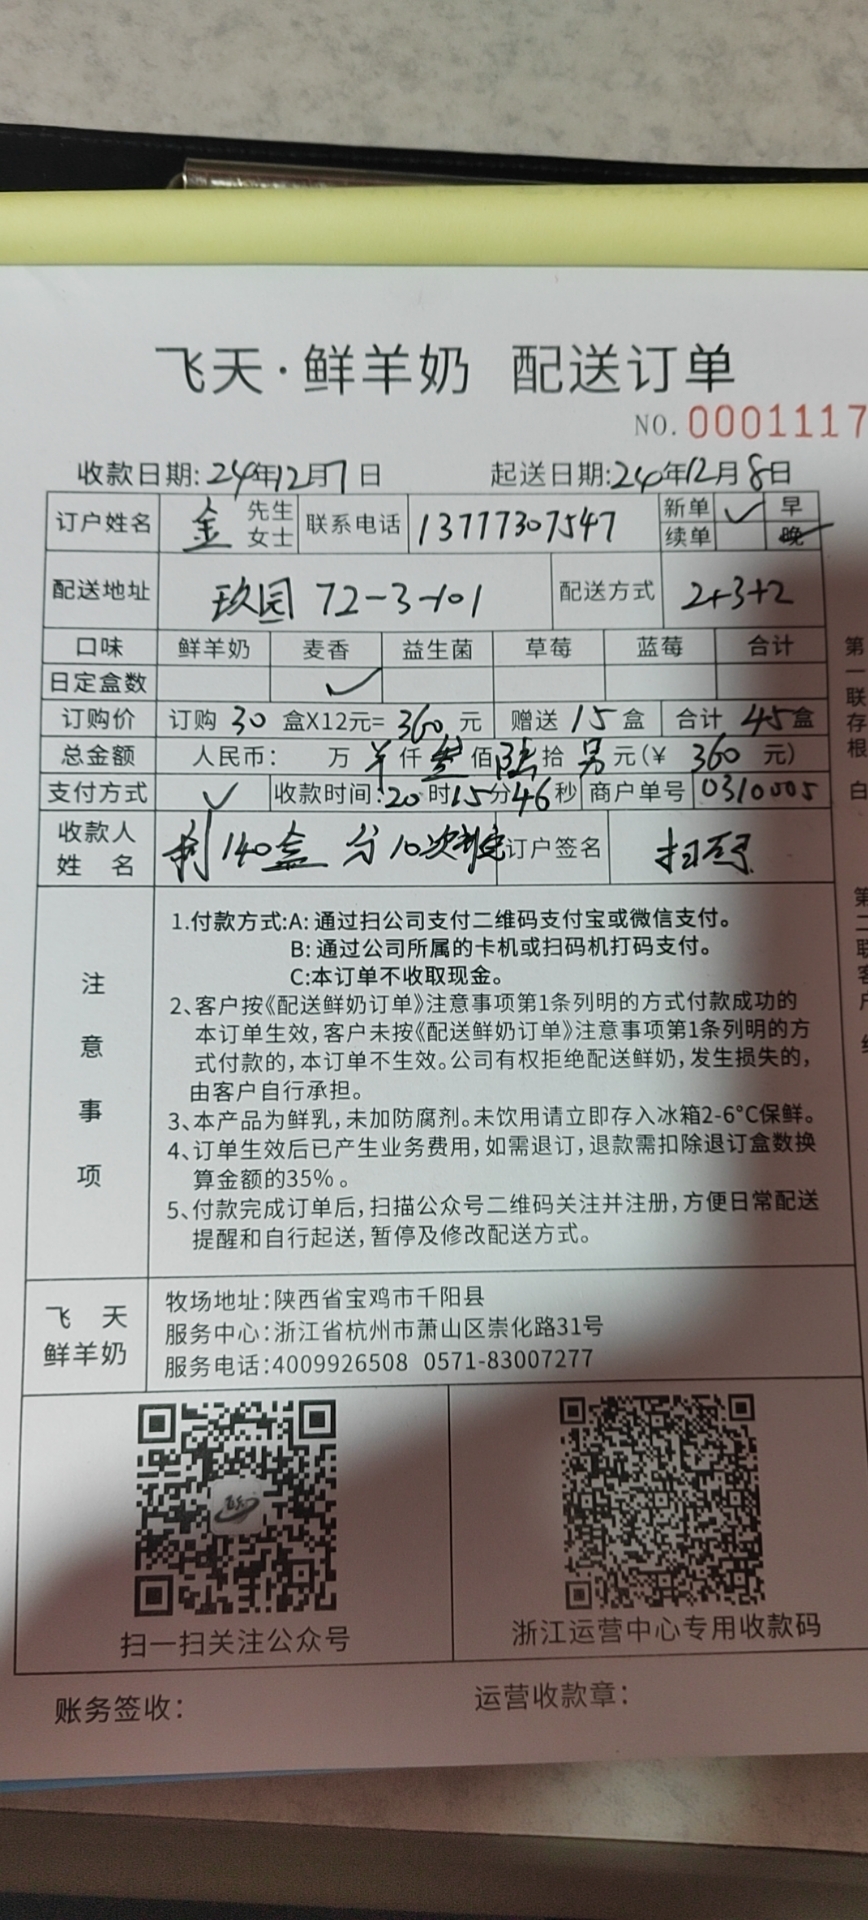 飞天·鲜羊奶 配送订单
NO.0001117
收款日期:24年12月7日 起送日期:24年12月8日
订户姓名 金 先生 女士 联系电话 13777307547 新单 ✓ 早 续单 晚
配送地址 玖园 72-3-101 配送方式 2+3+2
口味 鲜羊奶 麦香 益生菌 草莓 蓝莓 合计
日定盒数 ✓
订购价 订购 30 盒X12元= 360 元 赠送 15 盒 合计 45 盒
总金额 人民币: 万 仟 叁 佰 陆 拾 元(¥ 360 元)
支付方式 ✓ 收款时间:20时15分46秒 商户单号 0310005
收款人 姓名 140盒 分10次 订户签名 扫码
注意事项
1.付款方式:A: 通过扫公司支付二维码支付宝或微信支付。
B: 通过公司所属的卡机或扫码机打码支付。
C:本订单不收取现金。
2、客户按《配送鲜奶订单》注意事项第1条列明的方式付款成功的
本订单生效,客户未按《配送鲜奶订单》注意事项第1条列明的方
式付款的,本订单不生效。公司有权拒绝配送鲜奶,发生损失的,
由客户自行承担。
3、本产品为鲜乳,未加防腐剂。未饮用请立即存入冰箱2-6°C保鲜。
4、订单生效后已产生业务费用,如需退订,退款需扣除退订盒数换
算金额的35%。
5、付款完成订单后,扫描公众号二维码关注并注册,方便日常配送
提醒和自行起送,暂停及修改配送方式。
飞天 鲜羊奶
牧场地址:陕西省宝鸡市千阳县
服务中心:浙江省杭州市萧山区崇化路31号
服务电话:4009926508 0571-83007277
扫一扫关注公众号 浙江运营中心专用收款码
账务签收: 运营收款章:
第一联存根
白
第二联客户